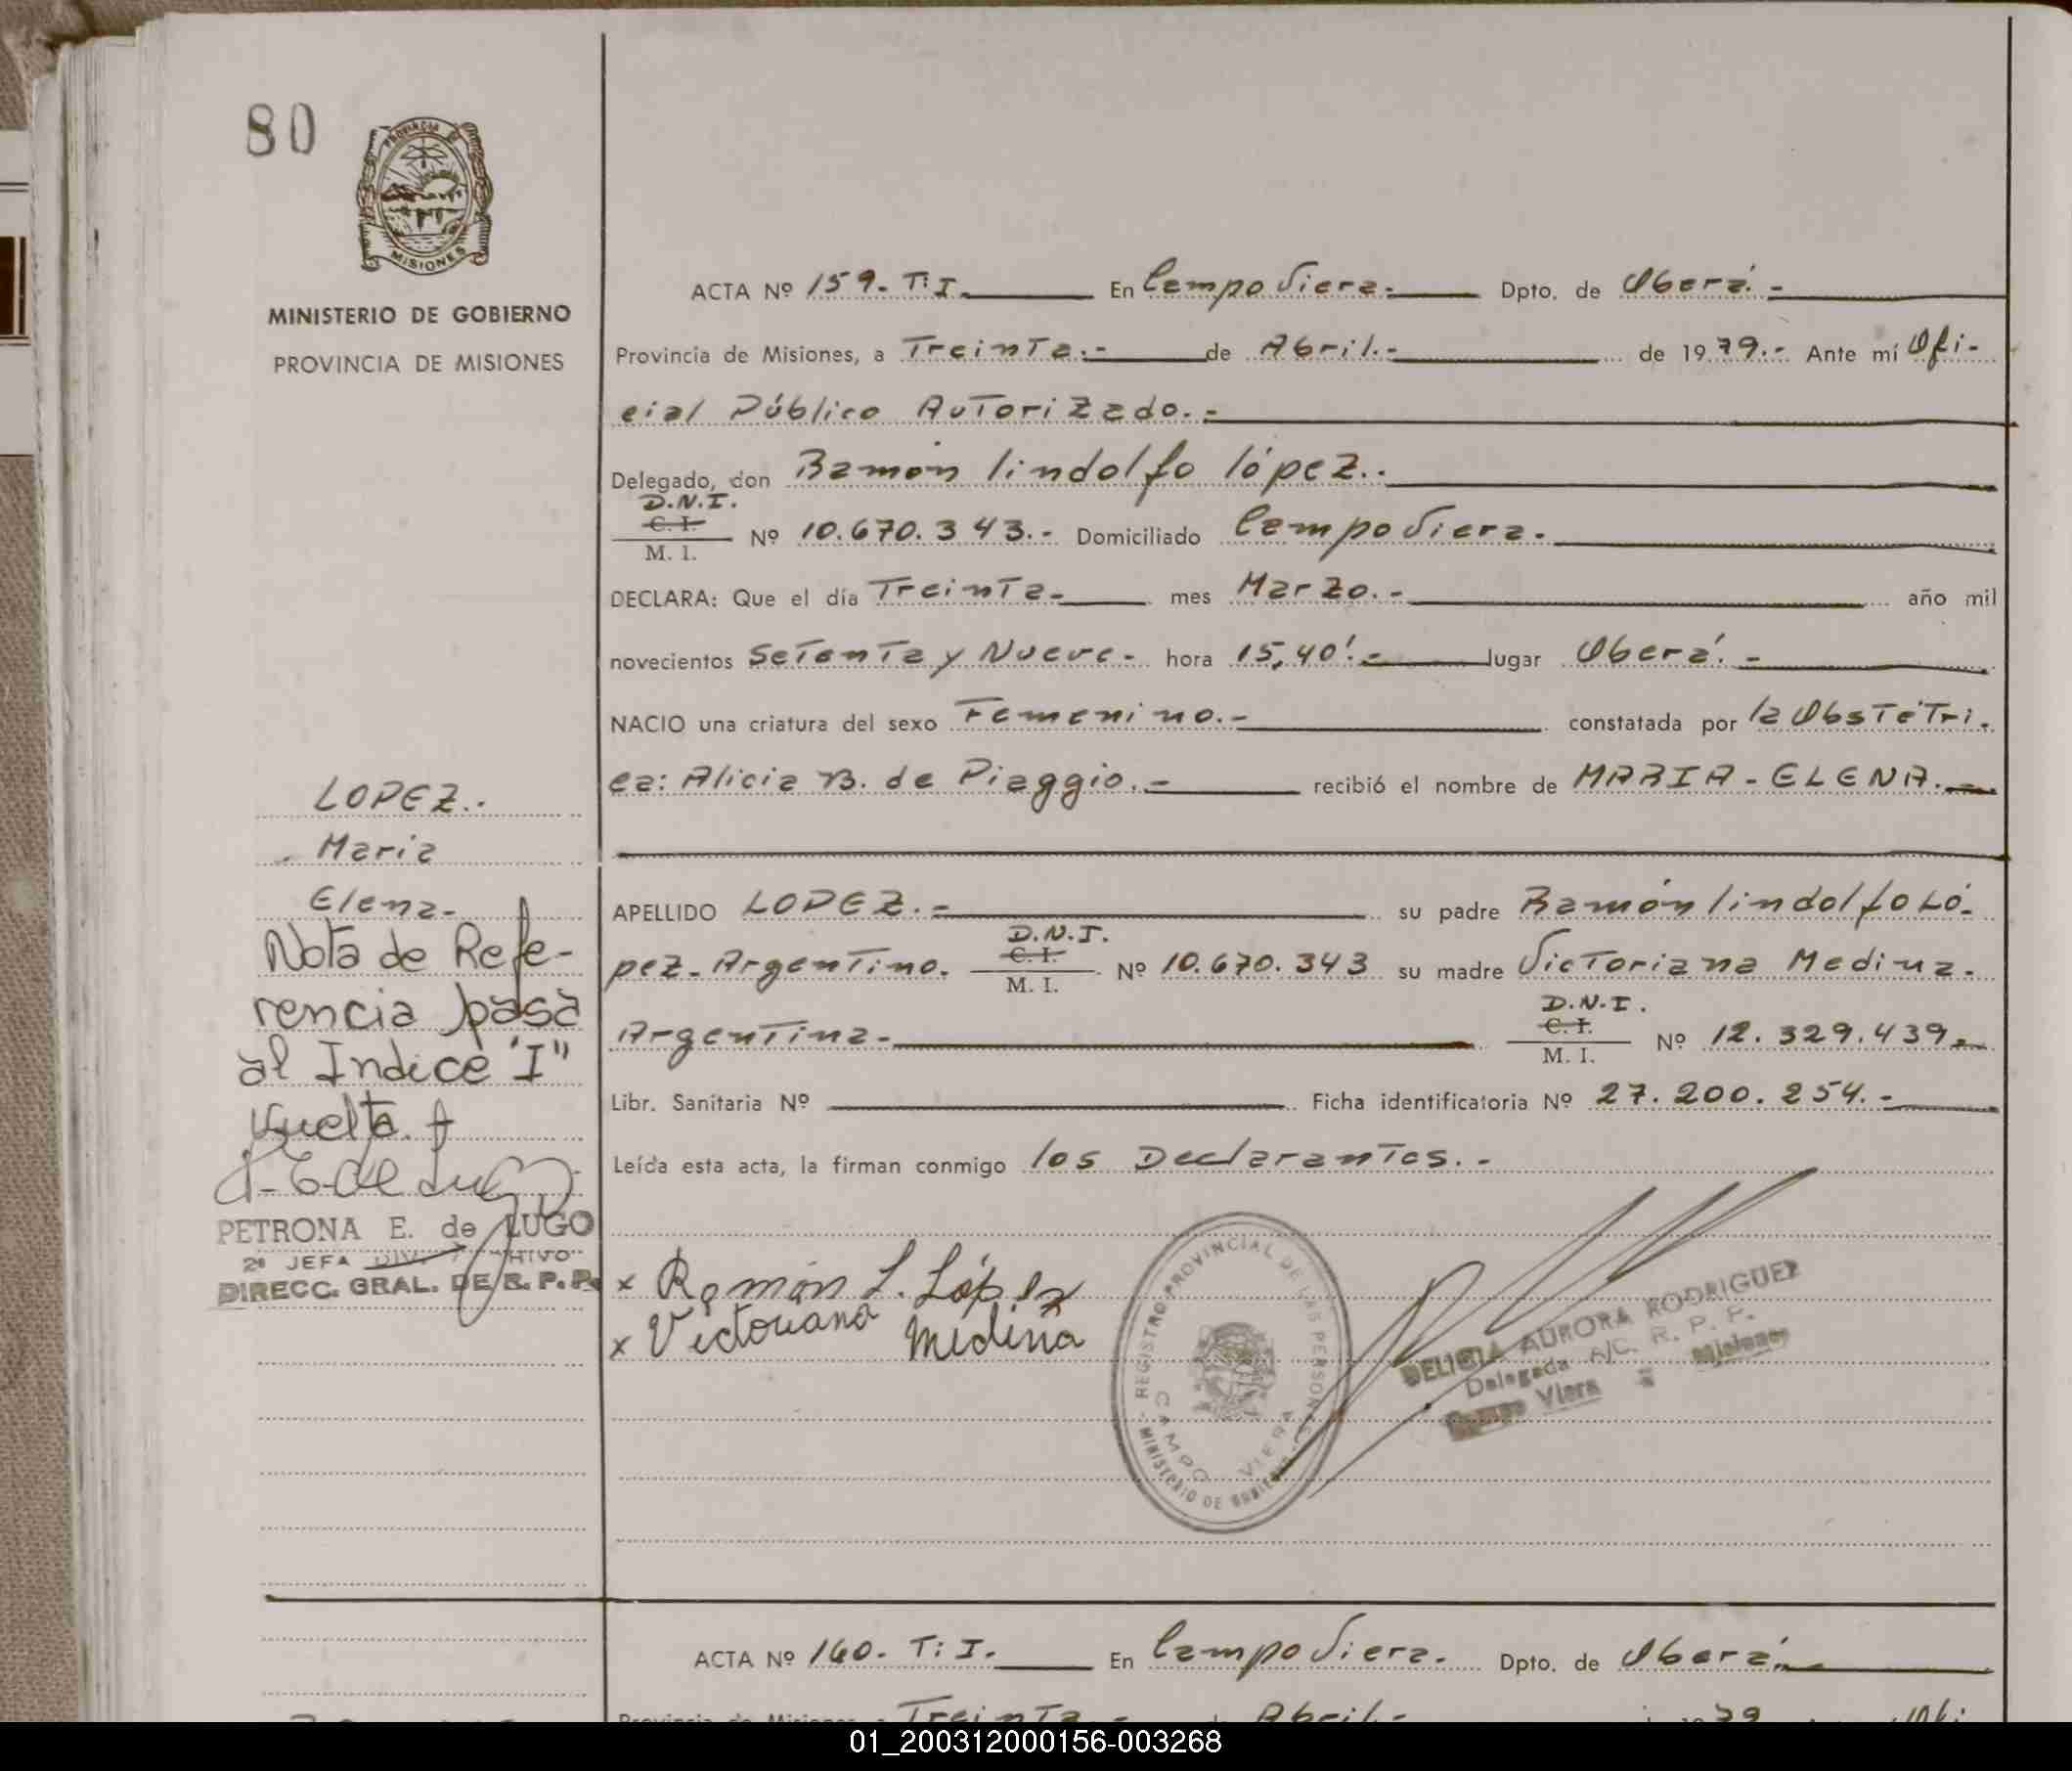 80
PROVINCIA DE
MISIONES
MINISTERIO DE GOBIERNO
PROVINCIA DE MISIONES
ACTA Nº 159. T:I. En Campo Viera.- Dpto. de Oberá.-
Provincia de Misiones, a Treinta.- de Abril.- de 1979.- Ante mí Ofi-
cial Público Autorizado.-
Delegado, don Ramón lindolfo lópez..
D.N.I.
C. I.
M. I. Nº 10.670.343.- Domiciliado Campo Viera.
DECLARA: Que el día Treinta- mes Marzo.- año mil
novecientos Setenta y Nueve- hora 15,40'.- lugar Oberá.-
NACIO una criatura del sexo Femenino.- constatada por la Obstétri-
ca: Alicia B. de Piaggio.- recibió el nombre de MARIA-ELENA.-
LOPEZ..
Maria
Elena-
Nota de Refe-
rencia pasa
al Indice "I"
Vuelta.
PETRONA E. de LUGO
2ª JEFA DIV.
DIRECC. GRAL. DE R. P. P.
APELLIDO LOPEZ.- su padre Ramón lindolfo Ló-
pez- Argentino. D.N.I.
C. I.
M. I. Nº 10.670.343 su madre Victoriana Medina-
Argentina- D.N.I.
C. I.
M. I. Nº 12.329.439.-
Libr. Sanitaria Nº Ficha identificatoria Nº 27.200.254.-
Leída esta acta, la firman conmigo los Declarantes.-
x Ramón L. López
x Victoriana Medina
REGISTRO PROVINCIAL DE LAS PERSONAS
MINISTERIO DE GOBIERNO
CAMPO VIERA
DELICIA AURORA RODRIGUEZ
Delegada A/C. R. P. P.
Campo Viera - Misiones
ACTA Nº 160. T:I. En Campo Viera. Dpto. de Oberá.
Provincia de Misiones, a Treinta.- de Abril.- de 1979 Ofi
01_200312000156-003268